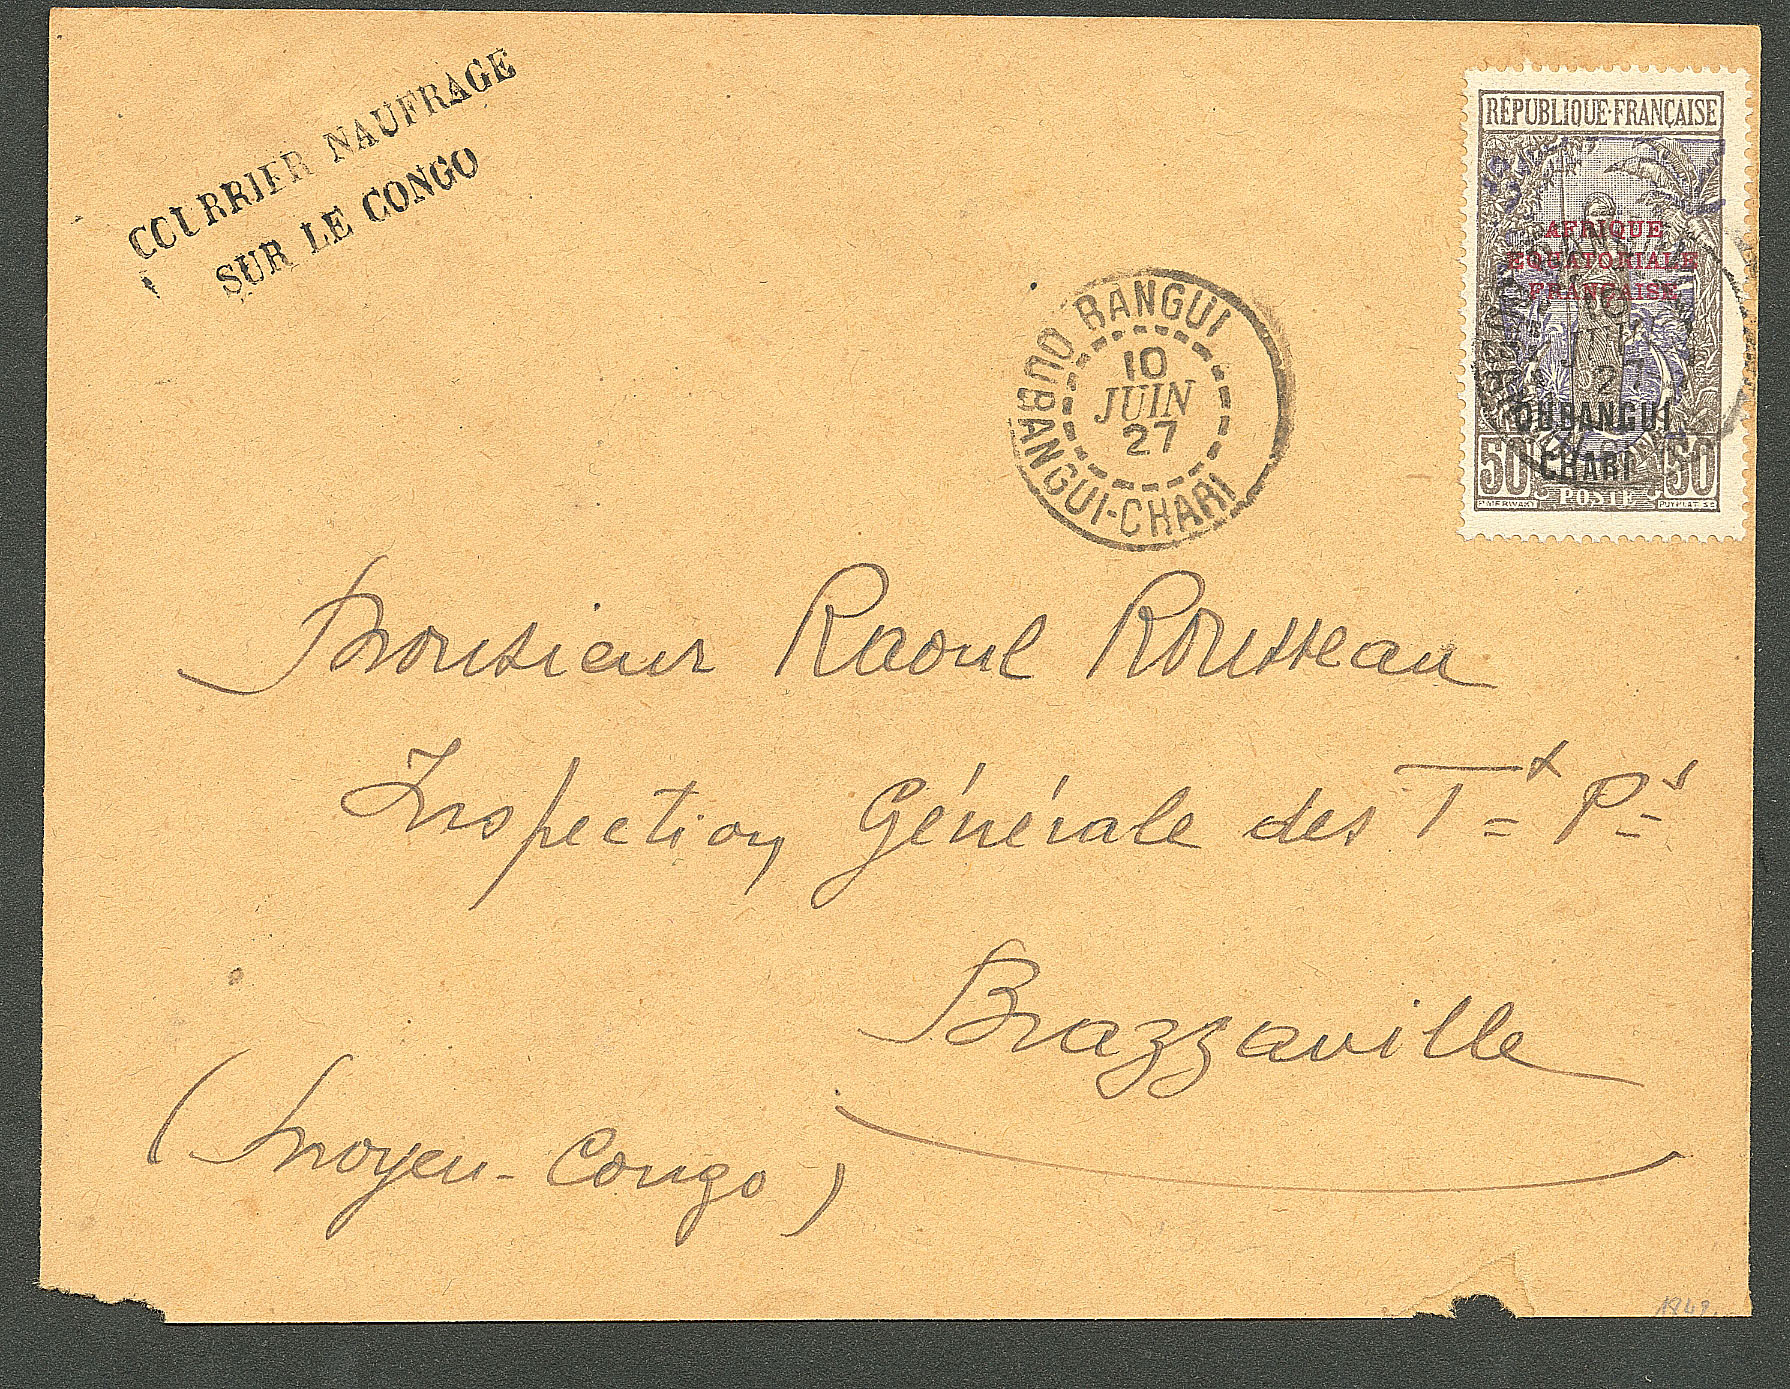 COURRIER NAUFRAGE
SUR LE CONGO
BANGUI
10
JUIN
27
OUBANGUI-CHARI
RÉPUBLIQUE·FRANÇAISE
AFRIQUE
EQUATORIALE
FRANÇAISE
10
JUIN
27
OUBANGUI
CHARI
50 POSTE 50
Monsieur Raoul Rousseau
Inspection Générale des Tx Ps
Brazzaville
(Moyen-Congo)